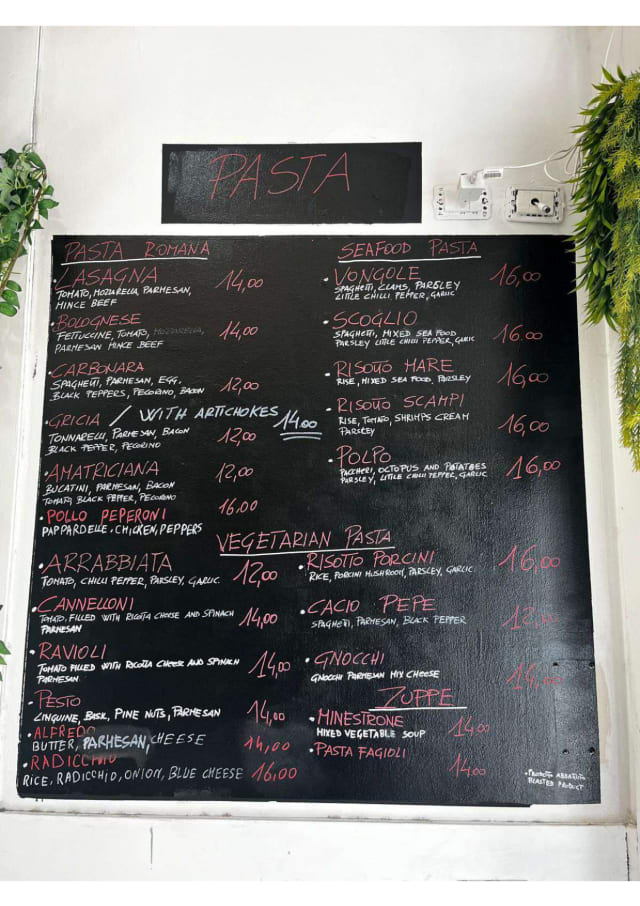 PASTA
PASTA ROMANA
LASAGNA 14,00
TOMATO, MOZZARELLA, PARMESAN,
MINCE BEEF
BOLOGNESE 14,00
FETTUCCINE, TOMATO, MOZZARELLA,
PARMESAN MINCE BEEF
CARBONARA 12,00
SPAGHETTI, PARMESAN, EGG,
BLACK PEPPERS, PECORINO, BACON
GRICIA / WITH ARTICHOKES 14.00
TONNARELLI, PARMESAN, BACON 12,00
BLACK PEPPER, PECORINO
AMATRICIANA 12,00
BUCATINI, PARMESAN, BACON
TOMATO, BLACK PEPPER, PECORINO
POLLO PEPERONI 16.00
PAPPARDELLE, CHICKEN, PEPPERS
SEAFOOD PASTA
VONGOLE 16,00
SPAGHETTI, CLAMS, PARSLEY
LITTLE CHILLI PEPPER, GARLIC
SCOGLIO 16.00
SPAGHETTI, MIXED SEA FOOD
PARSLEY LITTLE CHILLI PEPPER, GARLIC
RISOTTO MARE 16,00
RISE, MIXED SEA FOOD, PARSLEY
RISOTTO SCAMPI 16,00
RISE, TOMATO, SHRIMPS CREAM
PARSLEY
POLPO 16,00
PACCHERI, OCTOPUS AND POTATOES
PARSLEY, LITTLE CHILLI PEPPER, GARLIC
VEGETARIAN PASTA
ARRABBIATA 12,00
TOMATO, CHILLI PEPPER, PARSLEY, GARLIC
CANNELLONI 14,00
TOMATO, FILLED WITH RICOTTA CHEESE AND SPINACH
PARMESAN
RAVIOLI 14,00
TOMATO FILLED WITH RICOTTA CHEESE AND SPINACH
PARMESAN
PESTO 14,00
LINGUINE, BASIL, PINE NUTS, PARMESAN
ALFREDO 14,00
BUTTER, PARMESAN, CHEESE
RADICCHIO 16,00
RICE, RADICCHIO, ONION, BLUE CHEESE
RISOTTO PORCINI 16,00
RICE, PORCINI MUSHROOM, PARSLEY, GARLIC
CACIO PEPE 12,00
SPAGHETTI, PARMESAN, BLACK PEPPER
GNOCCHI 14,00
GNOCCHI PARMESAN MIX CHEESE
ZUPPE
MINESTRONE 14,00
MIXED VEGETABLE SOUP
PASTA FAGIOLI 14,00
PRODOTTO ABBATTUTO
BLASTED PRODUCT